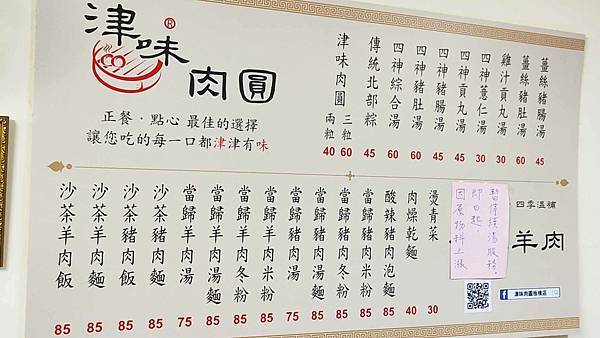 津味®
肉圓
正餐‧點心 最佳的選擇
讓您吃的每一口都津津有味
薑絲豬腸湯 45
薑絲豬肚湯 60
雞汁貢丸湯 30
四神薏仁湯 30
四神貢丸湯 45
四神豬腸湯 45
四神豬肚湯 60
四神綜合湯 60
傳統北部粽 45
津味肉圓
三粒 60
兩粒 40
四季溫補
羊肉
因原物料上漲
即日起,
暫停續湯服務
津味肉圓板橋店
燙青菜 30
肉燥乾麵 40
酸辣豬肉泡麵 85
當歸豬肉米粉 85
當歸豬肉冬粉 85
當歸豬肉湯麵 85
當歸豬肉湯 75
當歸羊肉米粉 85
當歸羊肉冬粉 85
當歸羊肉湯麵 85
當歸羊肉湯 75
沙茶豬肉麵 85
沙茶豬肉飯 85
沙茶羊肉麵 85
沙茶羊肉飯 85